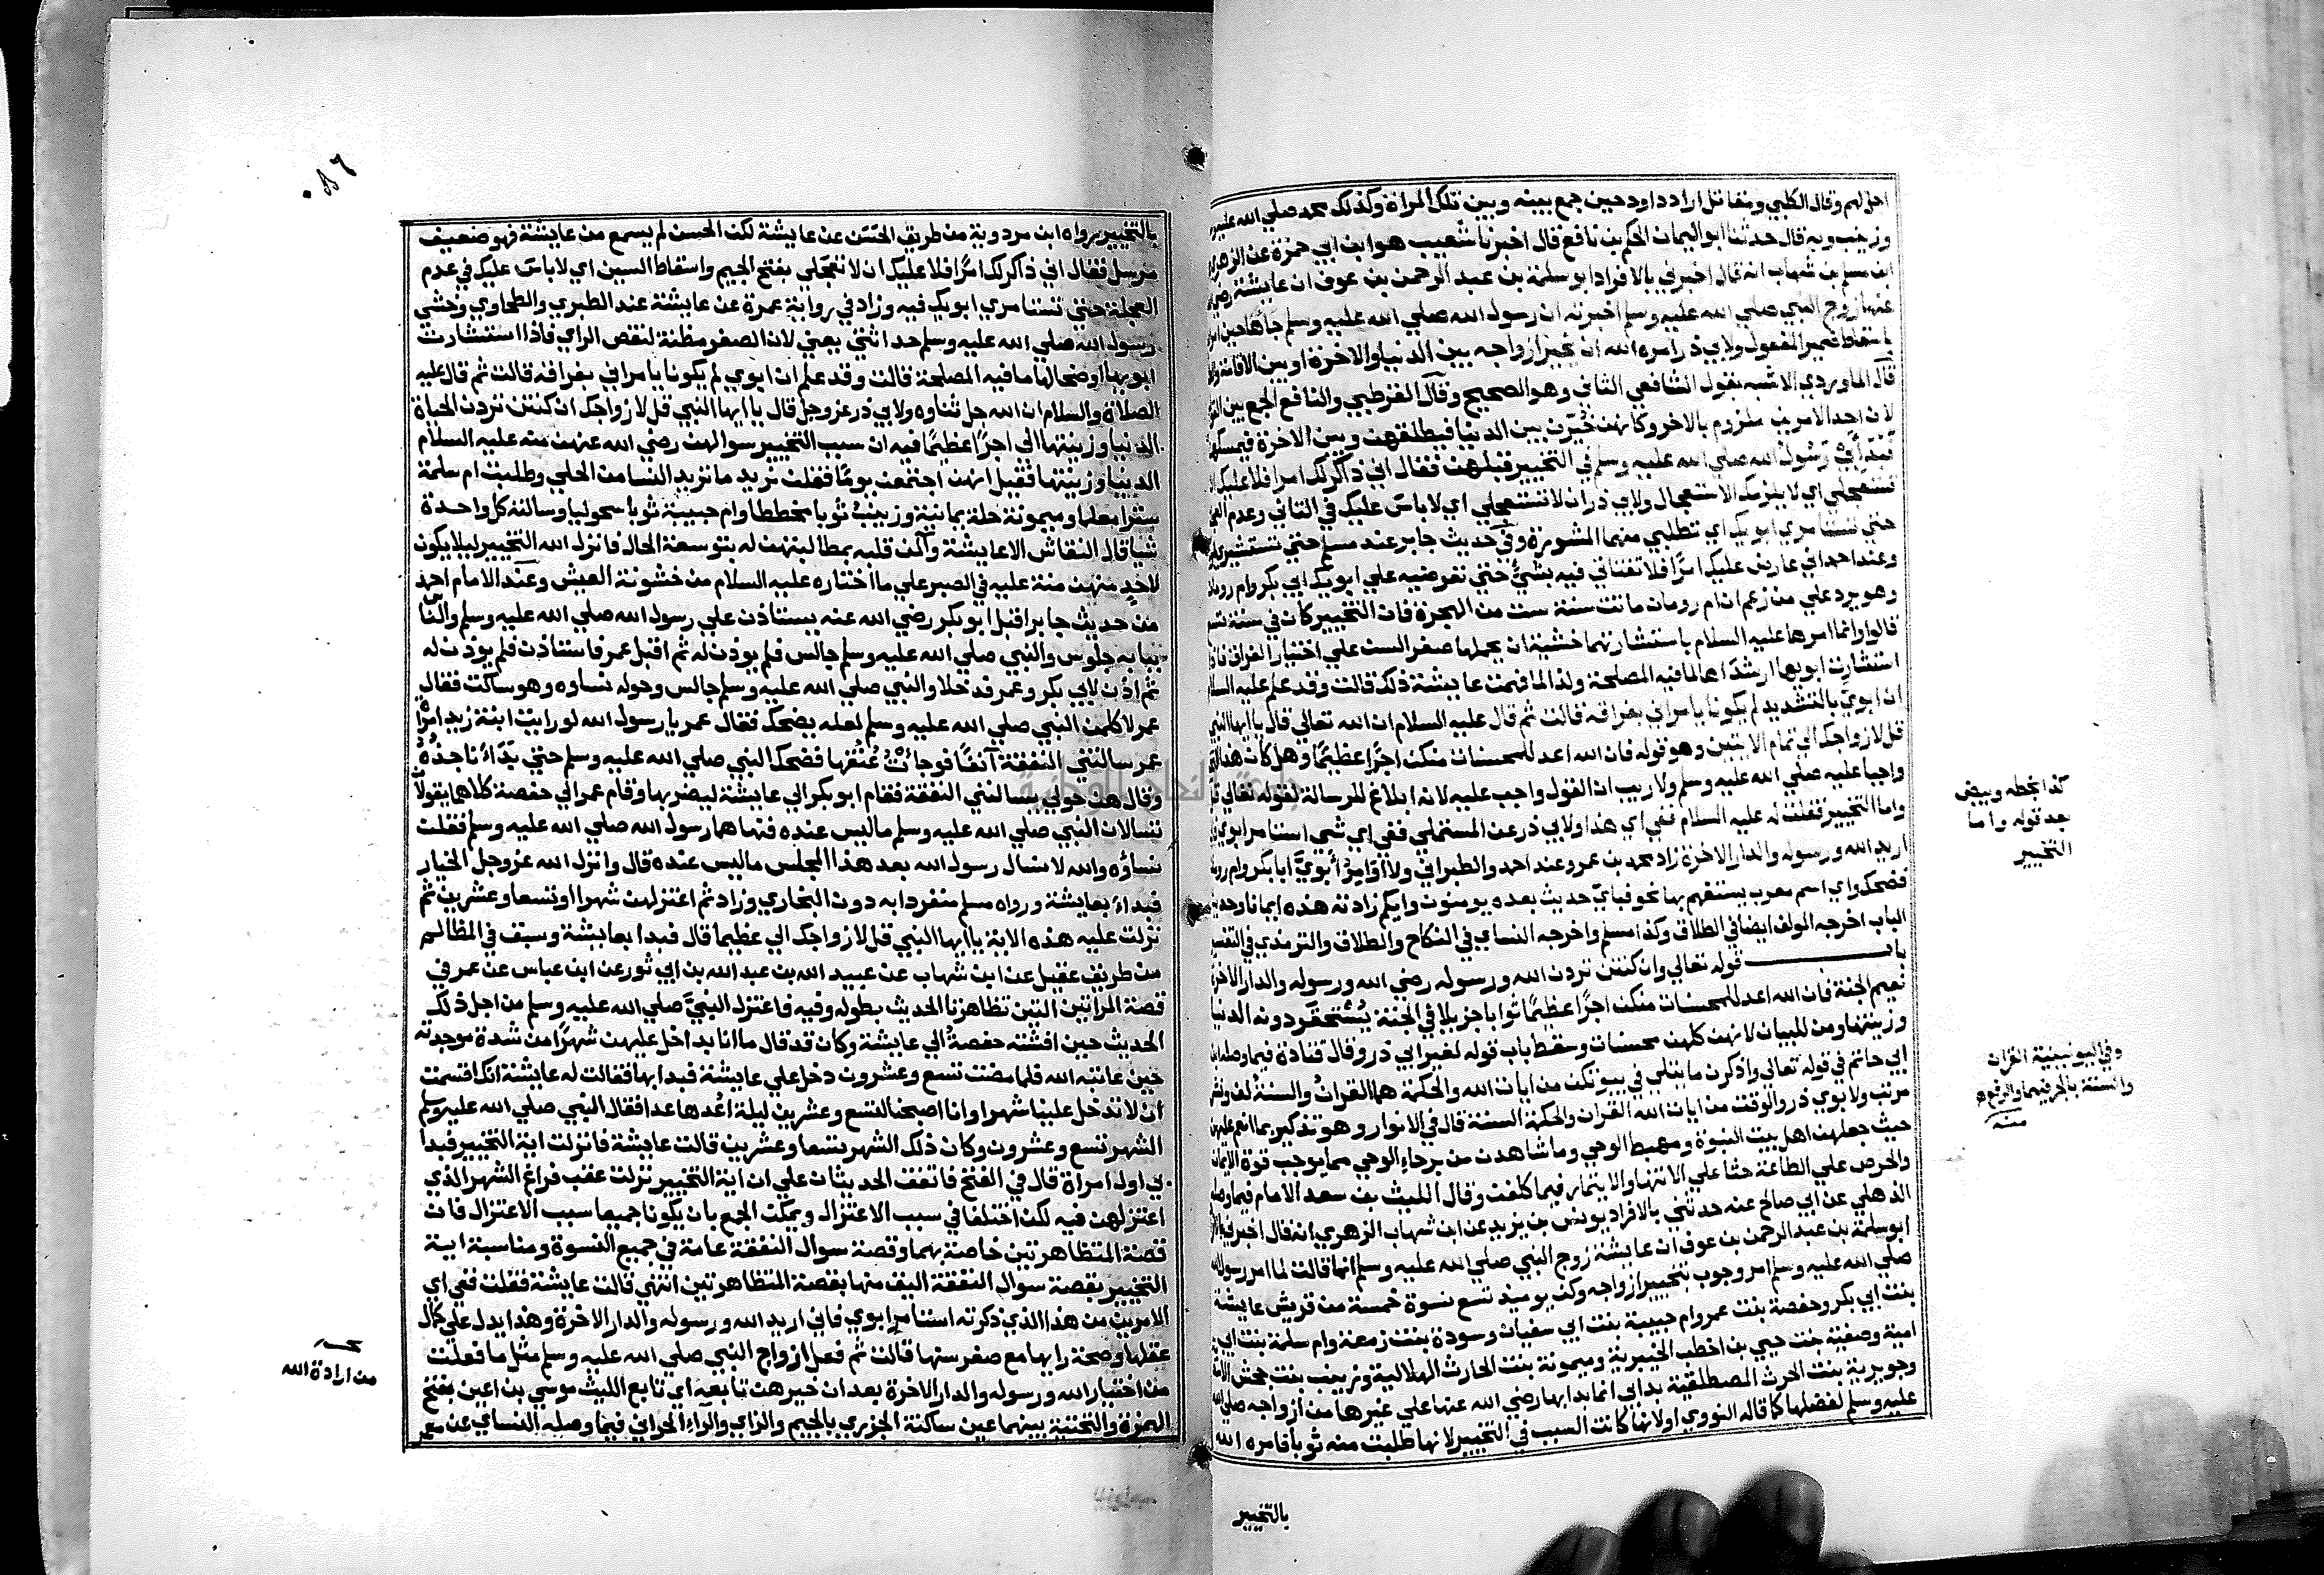 احل لهم وقال الكلبي ومقاتل اراد داود حين جمع بينه وبين تلك المراة وكذلك محمد صلي الله عليه
وزينب وبه قال حدثنا ابو اليمان الحكم بن نافع قال اخبرنا شعيب هو ابن ابي حمزة عن الزهري
ابن مسلم بن شهاب انه قال اخبرني بالافراد ابو سلمة بن عبد الرحمن بن عوف ان عايشة رضي
عنها زوج النبي صلي الله عليه وسلم اخبرته ان رسول الله صلي الله عليه وسلم جاها حين امر
باسقاط ضمير المفعول ولابي ذر امره الله ان يخير ازواجه بين الدنيا والاخرة او بين الاقامة
قال الماوردي الاشبه بقول الشافعي الثاني وهو الصحيح وقال القرطبي والنافع الجمع بين
لان احد الامرين ملزوم بالاخر وكانهن خيرن بين الدنيا فيطلقهن وبين الاخرة فيمسكهن
فبدأ بي رسول الله صلي الله عليه وسلم في التخيير قبلهن فقال اني ذاكر لك امرا فلا عليك
تستعجلي اي لا يلزمك الاستعجال ولابي ذر ان لا تستعجلي اي لا باس عليك في التاني وعدم
حتي تستامري ابويك اي تطلبي منهما المشورة وفي حديث جابر عند مسلم حتي تستشيري
وعند احمد اني عارض عليك امرا فلا تفتاتي فيه بشيء حتي تعرضيه علي ابويك ابي بكر وام رومان
وهو يرد علي من زعم ان ام رومان ماتت سنة ست من الهجرة فان التخيير كان في سنة تسع
قالوا وانما امرها عليه السلام باستشارتهما خشية ان يحملها صغر السن علي اختيار الفراق فاذا
استشارت ابويها ارشداها لما فيه المصلحة ولذا لما فهمت عايشة ذلك قالت وقد علم عليه السلام
ان ابويّ بالتشديد لم يكونا يامراني بفراقه قالت ثم قال عليه السلام ان الله تعالي قال يا ايها النبي
قل لازواجك الي تمام الايتين وهو قوله فان الله اعد للمحسنات منكن اجرا عظيما وهل كان هذا
واجبا عليه صلي الله عليه وسلم ولا ريب ان القول واجب عليه لانه ابلاغ للرسالة لقوله تعالي
واما التخيير فقلت له عليه السلام ففي اي هذا ولابي ذر عن المستملي ففي اي شي استامر ابوي
اريد الله ورسوله والدار الاخرة زاد محمد بن عمرو عند احمد والطبراني ولا اوامر ابويّ ابا بكر وام رومان
فضحك واي اسم معرب يستفهم بها نحو فباي حديث بعده يومنون وايكم زادته هذه ايمانا
الباب اخرجه المولف ايضا في الطلاق وكذا مسلم واخرجه النساي في النكاح والطلاق والترمذي في التفسير
باب قوله تعالي وان كنتن تردن الله ورسوله رضي الله ورسوله والدار الاخرة
نعيم الجنة فان الله اعد للمحسنات منكن اجرا عظيما ثوابا جزيلا في الجنة يستحقر دونه الدنيا
وزينتها ومن للبيان لانهن كلهن محسنات وسقط باب قوله لغير ابي ذر وقال قتادة فيما وصله ابن
ابي حاتم في قوله تعالي واذكرن ما يتلي في بيوتكن من ايات الله والحكمة هما القران والسنة لف ونشر
مرتب ولابوي ذر والوقت من ايات الله القران والحكمة السنة قال في الانوار وهو تذكير بما انعم عليهن
حيث جعلهن اهل بيت النبوة ومهبط الوحي وما شاهدن من برحاء الوحي مما يوجب قوة الايمان
والحرص علي الطاعة حثا علي الانتها والايتمار فيما كلفن وقال الليث بن سعد الامام فيما وصله
الذهلي عن ابي صالح عنه حدثني بالافراد يونس بن يزيد عن ابن شهاب الزهري انه قال اخبرني
ابو سلمة بن عبد الرحمن بن عوف ان عايشة زوج النبي صلي الله عليه وسلم انها قالت لما امر رسول الله
صلي الله عليه وسلم امر وجوب بتخيير ازواجه وكن يوميذ تسع نسوة خمسة من قريش عايشة
بنت ابي بكر وحفصة بنت عمر وام حبيبة بنت ابي سفيان وسودة بنت زمعة وام سلمة بنت ابي
امية وصفية بنت حيي بن اخطب الخيبرية وميمونة بنت الحارث الهلالية وزينب بنت جحش
وجويرية بنت الحرث المصطلقية بدا بي انما بدا بها رضي الله عنها علي غيرها من ازواجه صلي الله
عليه وسلم لفضلها كما قاله النووي او لانها كانت السبب في التخيير لانها طلبت منه ثوبا فامره الله
بالتخيير
كذا بخطه وبيض
بعد قوله واما
التخيير
وفي اليونينية القران
والسنة بالجر فيهما والرفع
منه
بالتخيير رواه ابن مردوية من طريق الحسن عن عايشة لكن الحسن لم يسمع من عايشة فهو ضعيف
مرسل فقال اني ذاكر لك امرا فلا عليك ان لا تعجلي بفتح الجيم واسقاط السين اي لا باس عليك في عدم
العجلة حتي تستامري ابويك فيه وزاد في رواية عمرة عن عايشة عند الطبري والطحاوي وخشي
رسول الله صلي الله عليه وسلم حداثتي يعني لان الصغر مظنة لنقص الراي فاذا استشارت
ابويها اوضحا لها ما فيه المصلحة قالت وقد علم ان ابوي لم يكونا يامراني بفراقه قالت ثم قال عليه
الصلاة والسلام ان الله جل ثناوه ولابي ذر عز وجل قال يا ايها النبي قل لازواجك ان كنتن تردن الحياة
الدنيا وزينتها الي اجرا عظيما فيه ان سبب التخيير سوالهن رضي الله عنهن منه عليه السلام
الدنيا وزينتها فقيل انهن اجتمعن يوما فقلن نريد ما تريد النسا من الحلي وطلبت ام سلمة
سترا معلما وميمونة حلة يمانية وزينب ثوبا مخططا وام حبيبة ثوبا سحوليا وسالته كل واحدة
شيا قال النقاش الا عايشة وآلمن قلبه بمطالبتهن له بتوسعة الحال فانزل الله التخيير ليلا يكون
لاحد منهن منة عليه في الصبر علي ما اختاره عليه السلام من خشونة العيش وعند الامام احمد
من حديث جابر اقبل ابو بكر رضي الله عنه يستاذن علي رسول الله صلي الله عليه وسلم والناس
ببابه جلوس والنبي صلي الله عليه وسلم جالس فلم يوذن له ثم اقبل عمر فاستاذن فلم يوذن له
ثم اذن لابي بكر وعمر فدخلا والنبي صلي الله عليه وسلم جالس وحوله نساوه وهو ساكت فقال
عمر لاكلمن النبي صلي الله عليه وسلم لعله يضحك فقال عمر يا رسول الله لو رايت ابنة زيد امرأة
عمر سالتني النفقة آنفا فوجأت عنقها فضحك النبي صلي الله عليه وسلم حتي بدا ناجذه
وقال هن حولي يسالنني النفقة فقام ابو بكر الي عايشة ليضربها وقام عمر الي حفصة كلاهما يقولان
تسالان النبي صلي الله عليه وسلم ما ليس عنده فنهاهما رسول الله صلي الله عليه وسلم فقلن
نساؤه والله لا نسال رسول الله بعد هذا المجلس ما ليس عنده قال وانزل الله عز وجل الخيار
فبداء بعايشة ورواه مسلم منفردا به دون البخاري وزاد ثم اعتزلهن شهرا او تسعا وعشرين ثم
نزلت عليه هذه الاية يا ايها النبي قل لازواجك الي عظيما قال فبدا بعايشة وسبق في المظالم
من طريق عقيل عن ابن شهاب عن عبيد الله بن عبد الله بن ابي ثور عن ابن عباس عن عمر في
قصة المراتين التين تظاهرتا الحديث بطوله وفيه فاعتزل النبي صلي الله عليه وسلم من اجل ذلك
الحديث حين افشته حفصة الي عايشة وكان قد قال ما انا بداخل عليهن شهرا من شدة موجدته
حين عاتبه الله فلما مضت تسع وعشرون دخل علي عايشة فبدا بها فقالت له عايشة انك اقسمت
ان لا تدخل علينا شهرا وانا اصبحنا لتسع وعشرين ليلة اعدها عدا فقال النبي صلي الله عليه وسلم
الشهر تسع وعشرون وكان ذلك الشهر تسعا وعشرين قالت عايشة فانزلت اية التخيير فبدا
بي اول امراة قال في الفتح فاتفق الحديثان علي ان اية التخيير نزلت عقب فراغ الشهر الذي
اعتزلهن فيه لكن اختلفا في سبب الاعتزال ويمكن الجمع بان يكونا جميعا سبب الاعتزال فان
قصة المتظاهرتين خاصة بهما وقصة سوال النفقة عامة في جميع النسوة ومناسبة اية
التخيير بقصة سوال النفقة اليق منها بقصة المتظاهرتين انتهي قالت عايشة فقلت ففي اي
الامرين من هذا الذي ذكرته استامر ابوي فاني اريد الله ورسوله والدار الاخرة وهذا يدل علي كمال
عقلها وصحة رايها مع صغر سنها قالت ثم فعل ازواج النبي صلي الله عليه وسلم مثل ما فعلت
من اختيار الله ورسوله والدار الاخرة بعد ان خيرهن تابعه اي تابع الليث موسي بن اعين بفتح
الهمزة والتحتية بينهما عين ساكنة الجزري بالجيم والزاي والراء الحراني فيما وصله النساي عن معمر
من ارادة الله